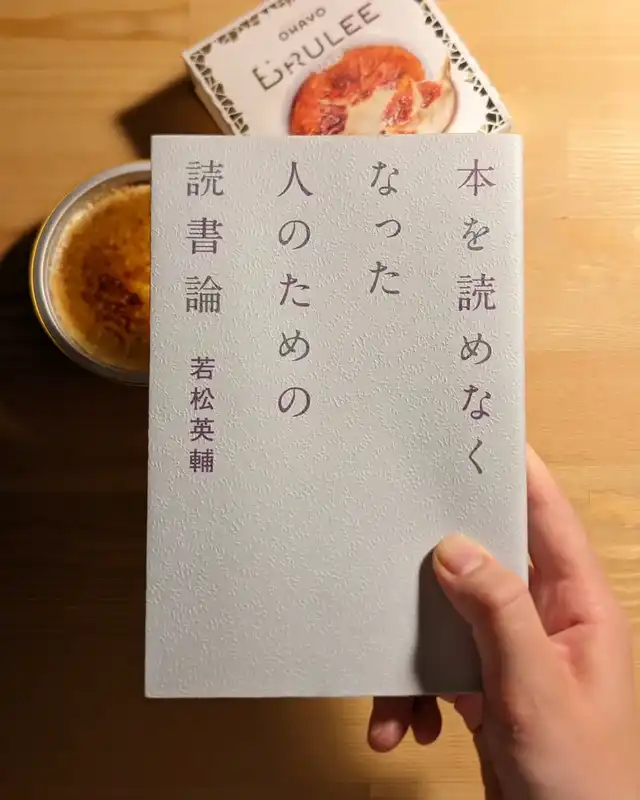 OHAYO
BRULEE
本を読めなく
なった
人のための
読書論
若松英輔